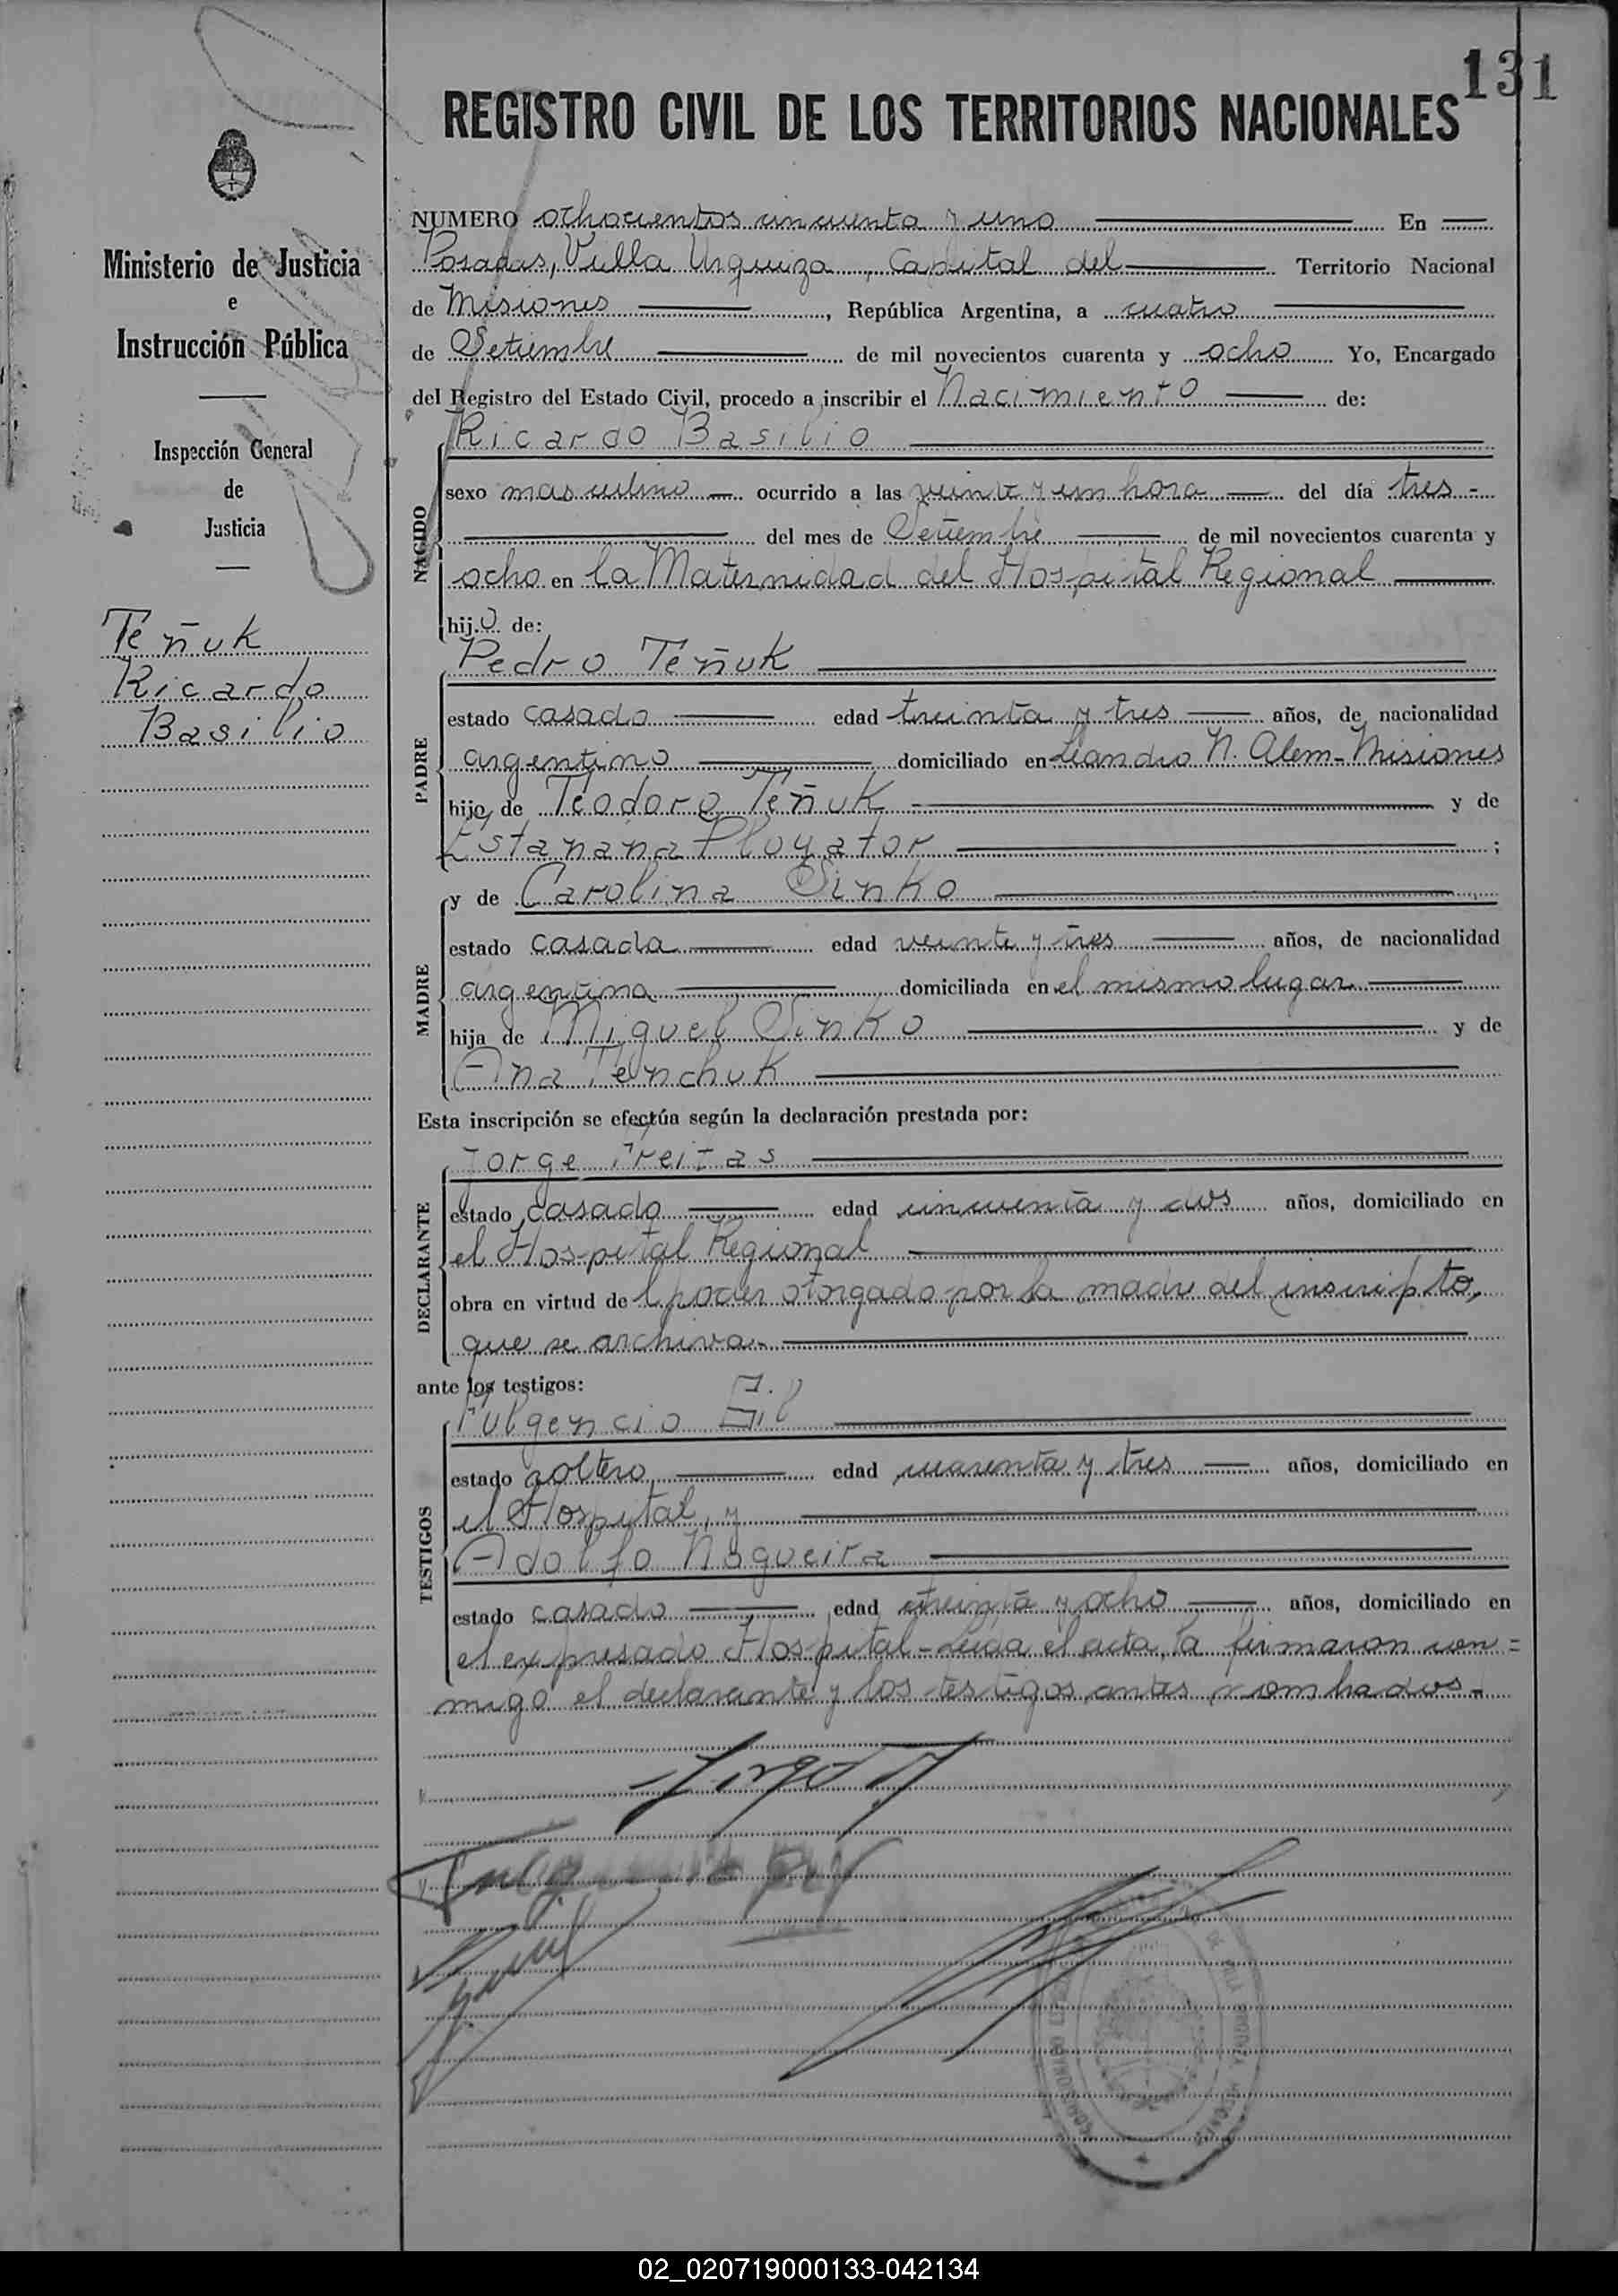 131
REGISTRO CIVIL DE LOS TERRITORIOS NACIONALES
Ministerio de Justicia
e
Instrucción Pública
Inspección General
de
Justicia
Teñuk
Ricardo
Basilio
NUMERO ochocientos cincuenta y uno En
Posadas, Villa Urquiza, Capital del Territorio Nacional
de Misiones, República Argentina, a cuatro
de Setiembre de mil novecientos cuarenta y ocho Yo, Encargado
del Registro del Estado Civil, procedo a inscribir el Nacimiento de:
Ricardo Basilio
NACIDO
sexo masculino ocurrido a las veinte y un hora del día tres
del mes de Setiembre de mil novecientos cuarenta y
ocho en la Maternidad del Hospital Regional
hijo de:
PADRE
Pedro Teñuk
estado casado edad treinta y tres años, de nacionalidad
argentino domiciliado en Leandro N. Alem - Misiones
hijo de Teodoro Teñuk y de
Estanana Ployator;
MADRE
y de Carolina Sinko
estado casada edad veinte y tres años, de nacionalidad
argentina domiciliada en el mismo lugar
hija de Miguel Sinko y de
Ana Tenchuk
Esta inscripción se efectúa según la declaración prestada por:
DECLARANTE
Jorge Freitas
estado casado edad cincuenta y dos años, domiciliado en
el Hospital Regional
obra en virtud del poder otorgado por la madre del inscripto,
que se archiva.-
ante los testigos:
TESTIGOS
Fulgencio Gil
estado soltero edad cuarenta y tres años, domiciliado en
el Hospital, y
Adolfo Nogueira
estado casado edad treinta y ocho años, domiciliado en
el expresado Hospital - Leida el acta, la firmaron con=
migo el declarante y los testigos antes nombrados.-
02_020719000133-042134